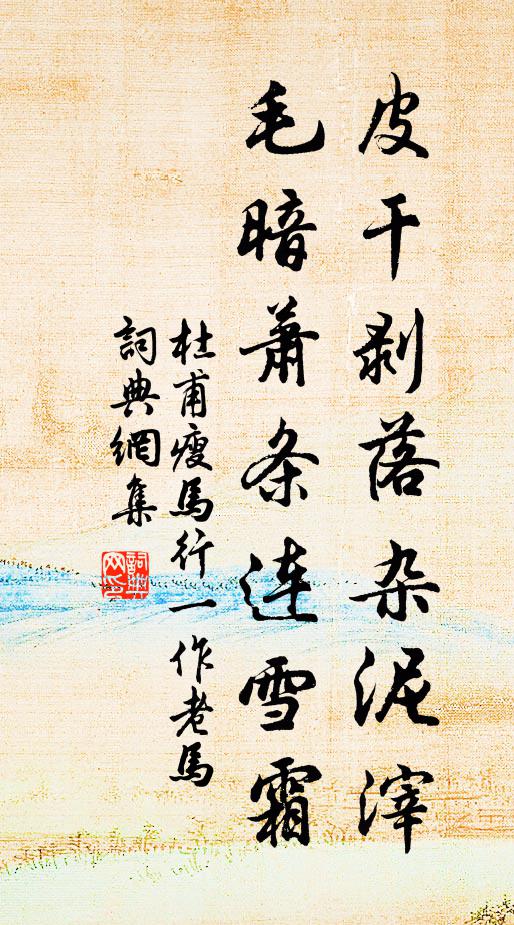 皮干剥落杂泥滓
毛暗蕭条连雪霜
杜甫瘦馬行一作老馬
詞典網集